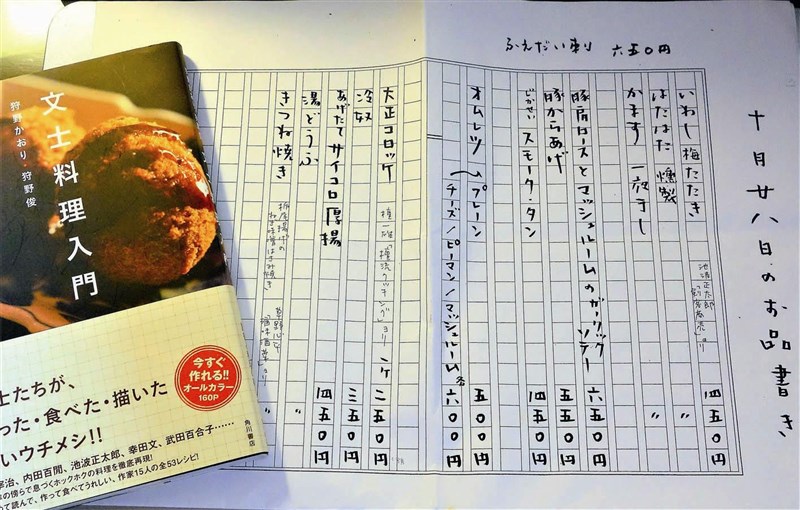 十月廿八日のお品書き
ふえだい刺 六五〇円
いわし梅たたき 池波正太郎「剣客商売」より 四五〇円
はたはた 燻製 〃
かます 一夜干し 〃
豚肩ロースとマッシュルームのガーリックソテー 六五〇円
豚からあげ 五五〇円
じかせい スモーク・タン 四五〇円
オムレツ プレーン 五〇〇円
チーズ/ピーマン/マッシュルーム 各六〇〇円
大正コロッケ 檀一雄「檀流クッキング」より 一ヶ 二五〇円
冷奴 三五〇円
あげたてサイコロ厚揚 四五〇円
湯どうふ 草野心平「酒味酒菜」より 〃
きつね焼き 栃尾揚げのねぎ味噌はさみ焼き 〃
文士料理入門
狩野かおり 狩野俊
士たちが、
った・食べた・描いた
いウチメシ!!
今すぐ
作れる!!
オールカラー
160P
角川書店
宰治、内田百閒、池波正太郎、幸田文、武田百合子……
の傍らで息づくホックホクの料理を徹底再現!
めて読んで、作って食べてうれしい、作家15人の全53レシピ!